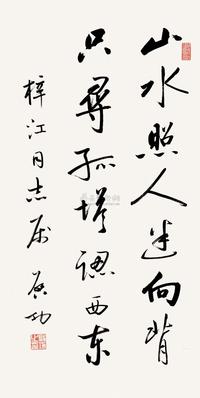 山水照人迷向背
只寻孤塔認西东
梓江同志属 启功